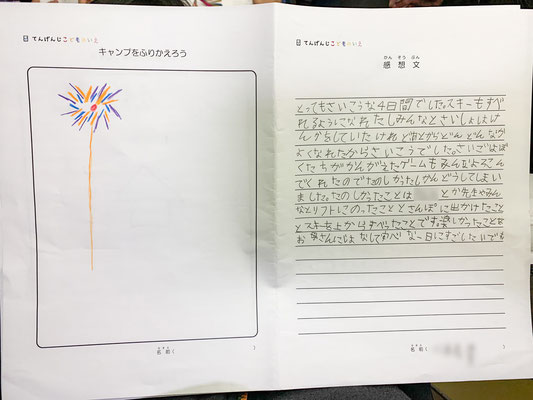 てんげんじこどものいえ
キャンプをふりかえろう
名前(　)
なまえ
てんげんじこどものいえ
かんそうぶん
感想文
とってもさいこうな4日間でした。スキーもすべ
れるようになれたしみんなとさいしょはけ
んかをしていたけれどあとからどんどんなかが
よくなれたからさいこうでした。さいごはぼ
くたちがかんがえたゲームもみんなよろこん
でくれたのでたのしかったしかんどうしてしまい
ました。たのしかったことは とか先生やみん
なとリフトにのったこととさんぽに出かけたこと
とスキーを上からすべったことです楽しかったことを
お母さんには なして 一日にすごしたいです
なまえ
名前(　)